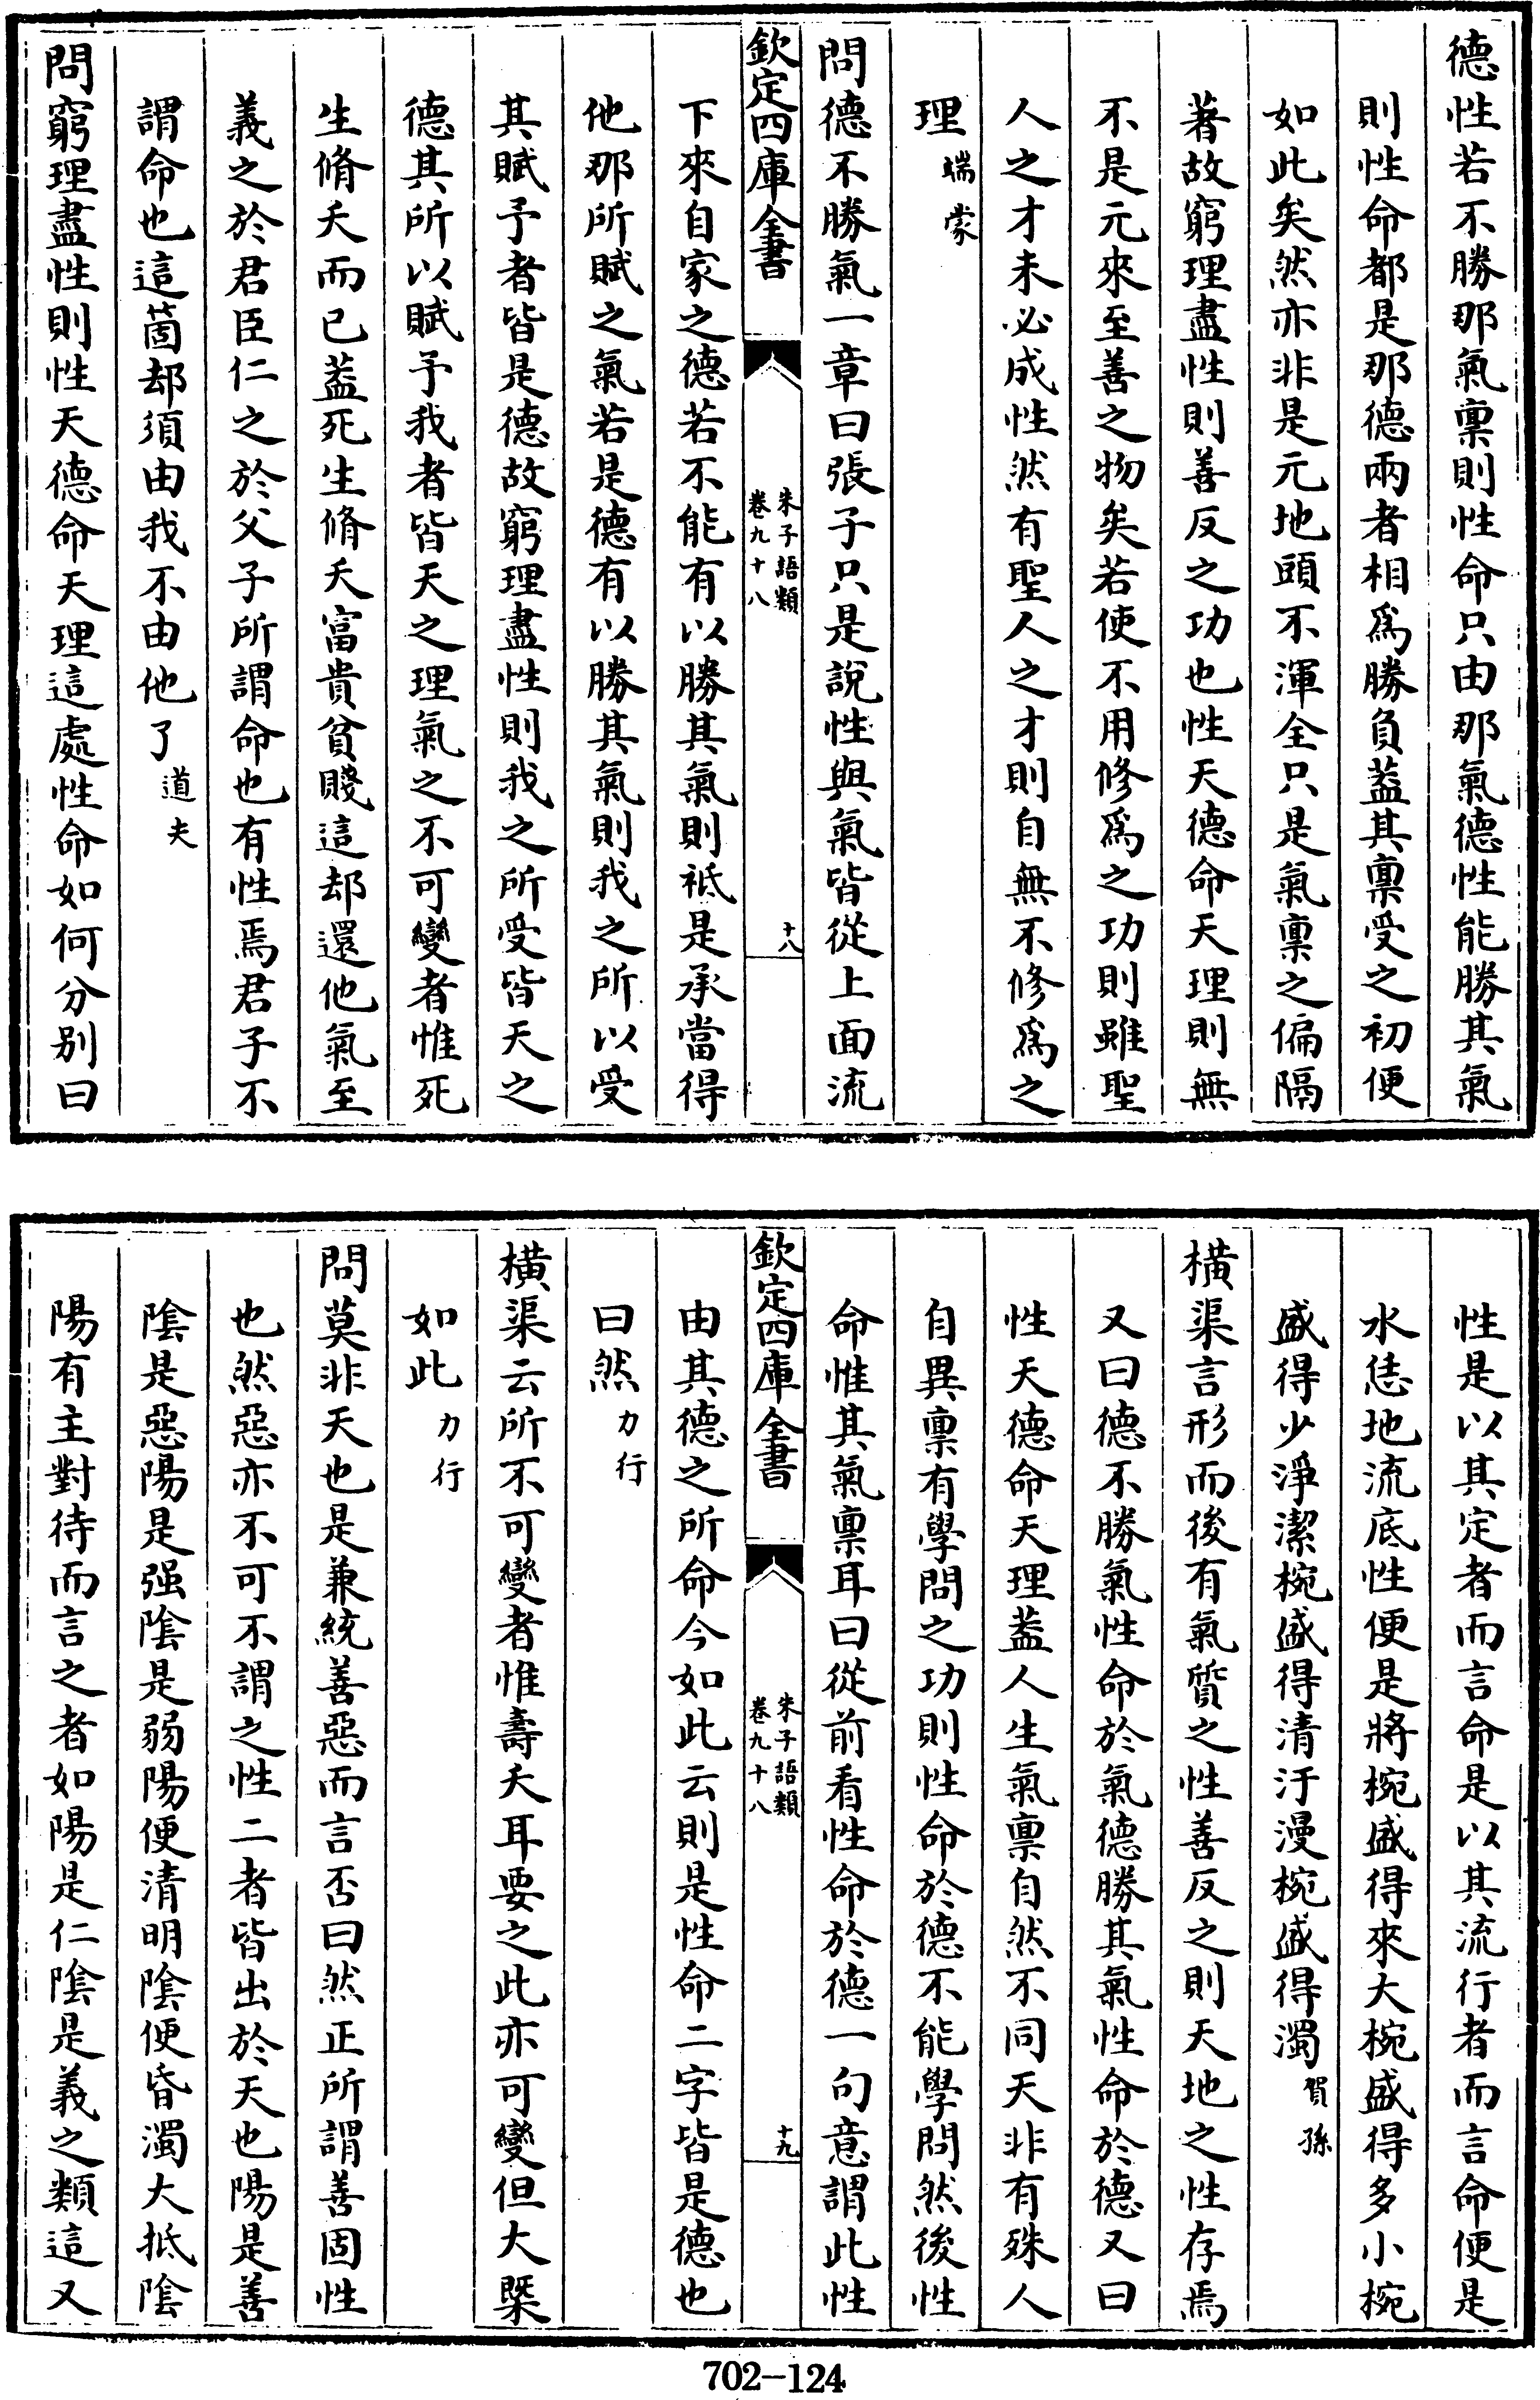 德性若不勝那氣稟則性命只由那氣德性能勝其氣
則性命都是那德兩者相爲勝負葢其稟受之初便
如此矣然亦非是元地頭不渾全只是氣稟之偏隔
著故窮理盡性則善反之功也性天德命天理則無
不是元來至善之物矣若使不用修爲之功則雖聖
人之才未必成性然有聖人之才則自無不修爲之
理端蒙
問德不勝氣一章曰張子只是說性與氣皆從上面流
欽定四庫全書
朱子語類
卷九十八
十八
下來自家之德若不能有以勝其氣則祗是承當得
他那所賦之氣若是德有以勝其氣則我之所以受
其賦予者皆是德故窮理盡性則我之所受皆天之
德其所以賦予我者皆天之理氣之不可變者惟死
生脩夭而已葢死生脩夭富貴貧賤這却還他氣至
義之於君臣仁之於父子所謂命也有性焉君子不
謂命也這箇却須由我不由他了道夫
問窮理盡性則性天德命天理這處性命如何分别曰
性是以其定者而言命是以其流行者而言命便是
水恁地流底性便是將椀盛得來大椀盛得多小椀
盛得少淨潔椀盛得清汙漫椀盛得濁賀孫
橫渠言形而後有氣質之性善反之則天地之性存焉
又曰德不勝氣性命於氣德勝其氣性命於德又曰
性天德命天理葢人生氣稟自然不同天非有殊人
自異稟有學問之功則性命於德不能學問然後性
命惟其氣稟耳曰從前看性命於德一句意謂此性
欽定四庫全書
朱子語類
卷九十八
十九
由其德之所命今如此云則是性命二字皆是德也
曰然力行
橫渠云所不可變者惟壽夭耳要之此亦可變但大槩
如此力行
問莫非天也是兼統善惡而言否曰然正所謂善固性
也然惡亦不可不謂之性二者皆出於天也陽是善
陰是惡陽是强陰是弱陽便清明陰便昏濁大抵陰
陽有主對待而言之者如陽是仁陰是義之類這又
702-124